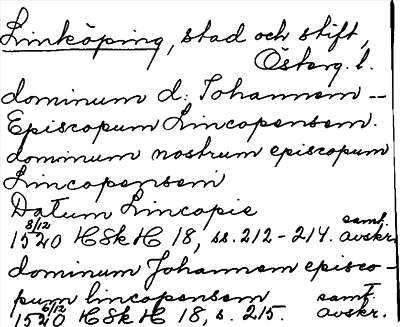 Linköping, stad och stift,
Österg. l.
dominum d. Johannem --
Episcopum Lincopensem.
dominum nostrum episcopum
Lincopensem
Datum Lincopie
3/12 samt.
1520 HSkH 18, ss. 212-214. avskr.
dominum Johannem episco-
pum lincopensem samt.
6/12
1520 HSkH 18, s. 215. avskr.